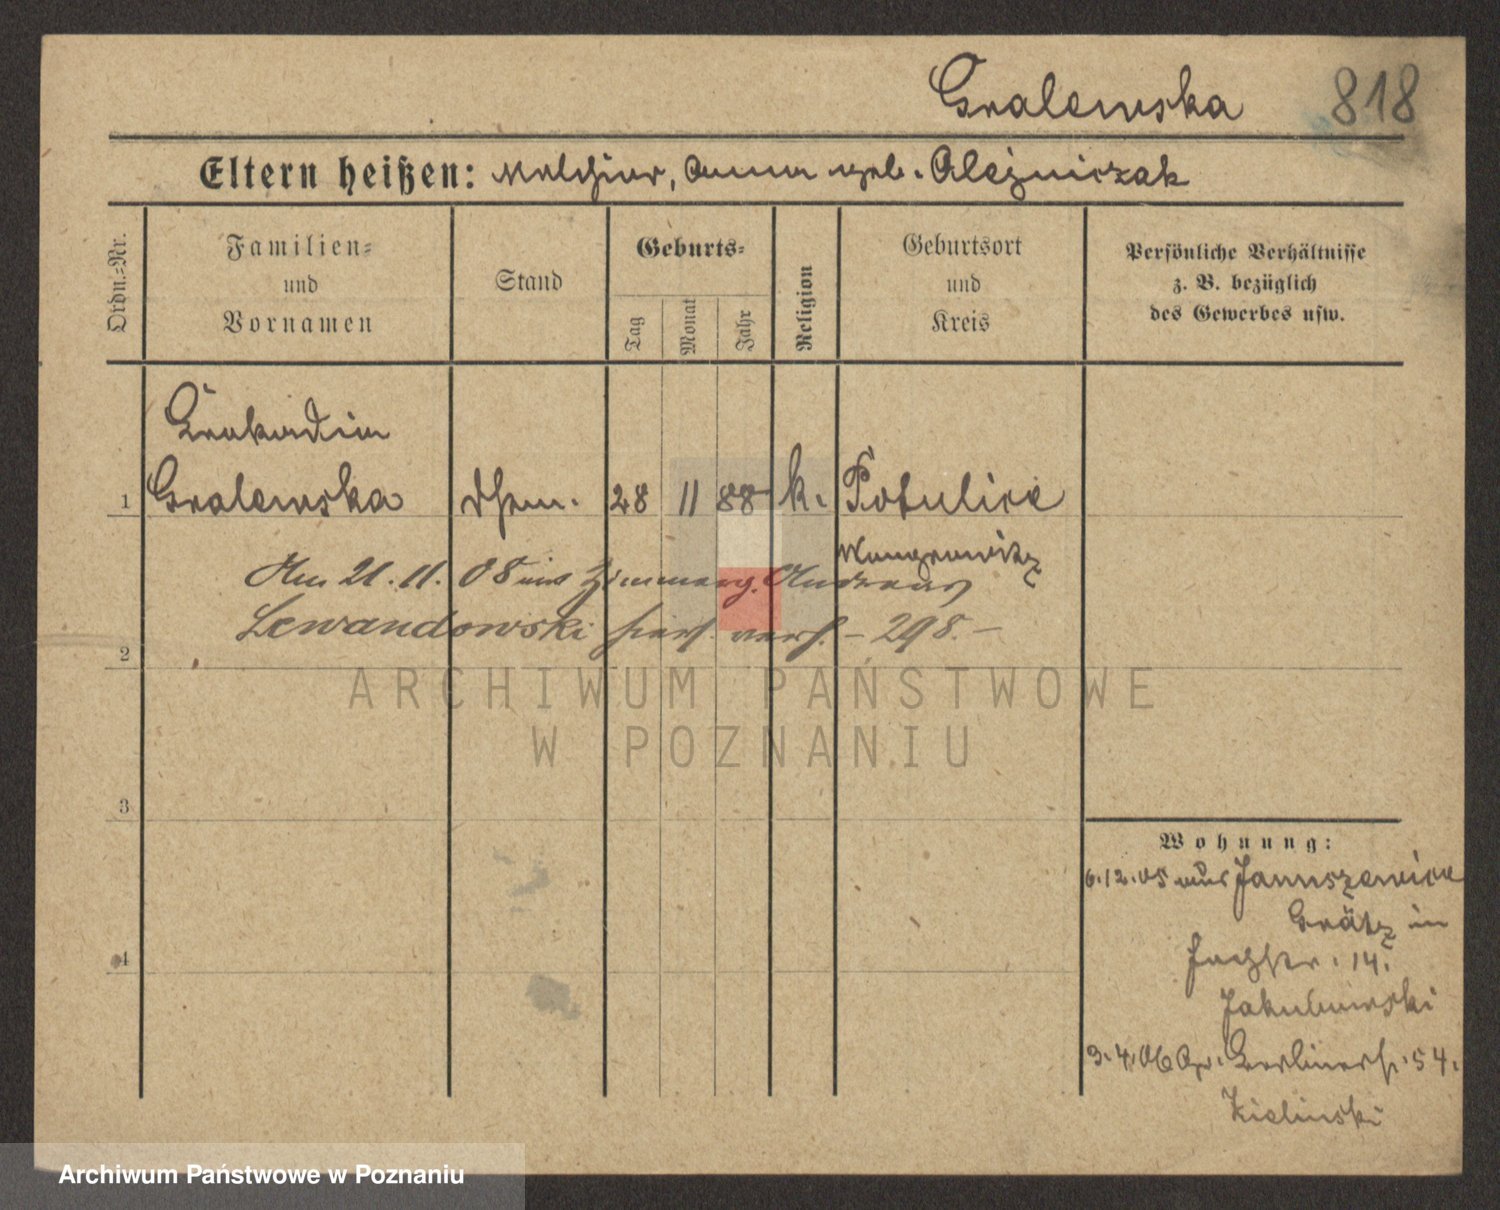 Gralewska 818
Eltern heißen: Melchior, Anna geb. Olejniczak
Ordn.=Nr.
Familien=
und
Vornamen
Stand
Geburts=
Tag
Monat
Jahr
Religion
Geburtsort
und
Kreis
Persönliche Verhältnisse
z. B. bezüglich
des Gewerbes usw.
1 Gralewska 28 11 88 k. Potulice
Wongrowitz
Am 21.11.08 mit Andreas
2 Lewandowski hiers. verh. – 298. –
ARCHIWUM PAŃSTWOWE
W POZNANIU
3
Wohnung:
6.12.05 aus Januszewice
Grätz in
14.
4
Jakubowski
3.4.06 Berlinerstr. 54.
Zielinski
Archiwum Państwowe w Poznaniu